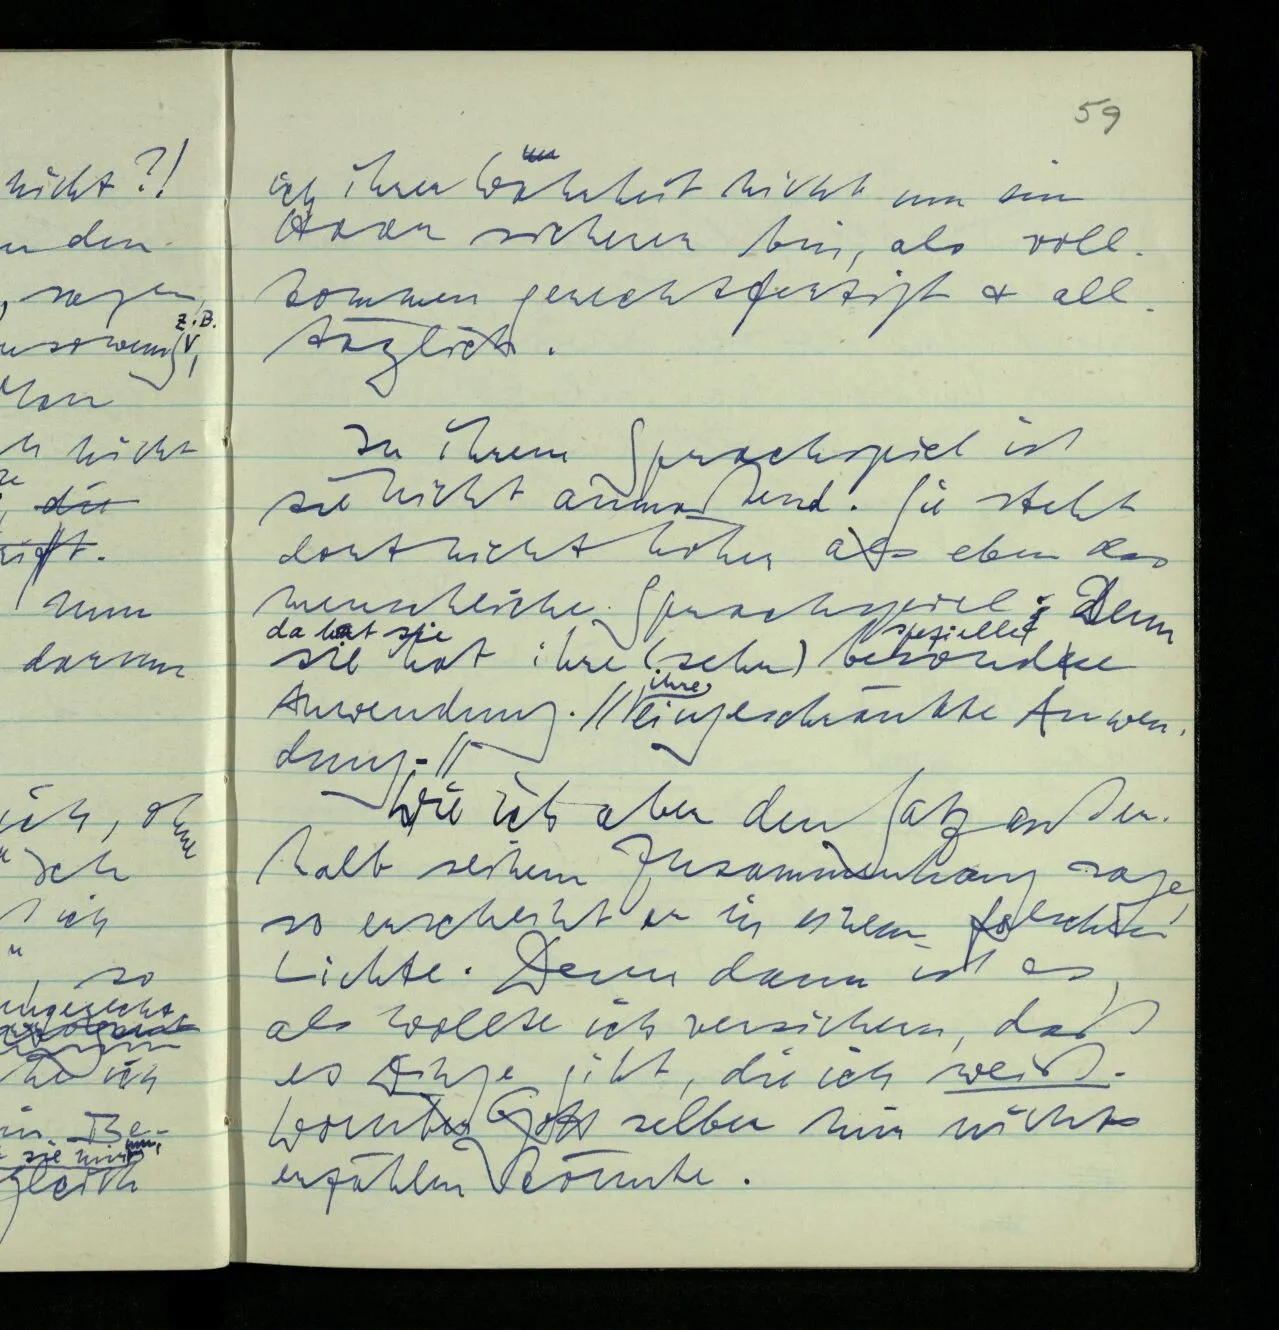 nicht?!
den
sagen,
z.B.
ensowenig,
Man
nicht
die
nun
darum
ich, ohne
ich
ich
", so
ich
in Be-
gleich
59
ich ihrer Wahrheit nicht um ein
Haar sicherer bin, als voll-
kommen gerechtfertigt & all-
täglich.
In ihrem Sprachspiel ist
sie nicht anmaßend. Sie steht
dort nicht höher als eben das
menschliche Sprachspiel; Denn
da hat sie spezielle
sie hat ihre (sehr) besondere
Anwendung. // ihre
eingeschränkte Anwen-
dung. //
Wie ich aber den Satz außer-
halb seinem Zusammenhang sage,
so erscheint er in einem falschen
Lichte. Denn dann ist es,
als wollte ich versichern, daß
es Dinge gibt, die ich weiß.
Worüber Gott selber mir nichts
erzählen könnte.